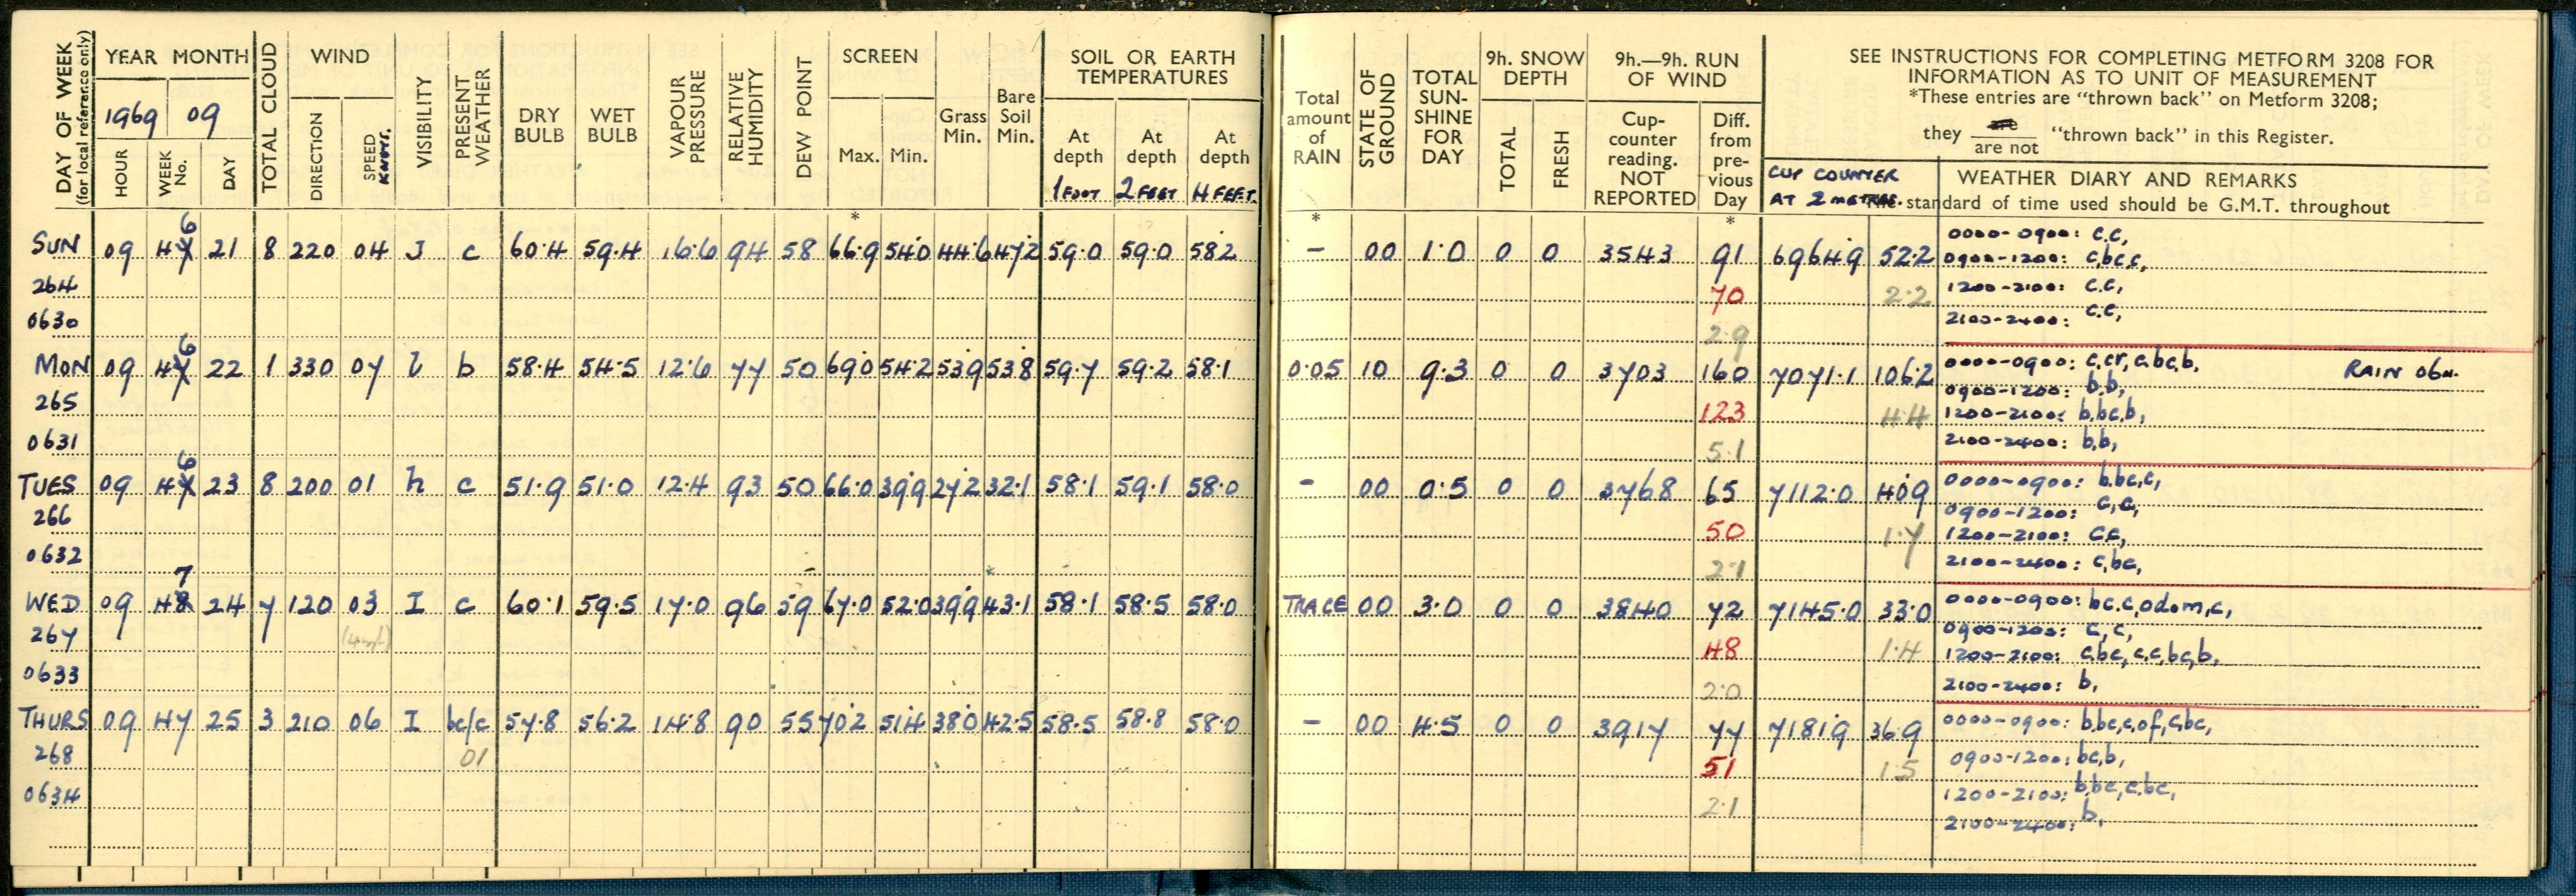 DAY OF WEEK (for local reference only)
YEAR MONTH
1969 09
HOUR WEEK No. DAY
TOTAL CLOUD
WIND
DIRECTION SPEED KNOTS.
VISIBILITY
PRESENT WEATHER
DRY BULB
WET BULB
VAPOUR PRESSURE
RELATIVE HUMIDITY
DEW POINT
SCREEN
Max. Min.
Grass Min.
Bare Soil Min.
SOIL OR EARTH TEMPERATURES
At depth At depth At depth
1 FOOT 2 FEET 4 FEET.
Total amount of RAIN
STATE OF GROUND
TOTAL SUN-SHINE FOR DAY
9h. SNOW DEPTH
TOTAL FRESH
9h.—9h. RUN OF WIND
Cup-counter reading. NOT REPORTED
Diff. from pre-vious Day
SEE INSTRUCTIONS FOR COMPLETING METFORM 3208 FOR
INFORMATION AS TO UNIT OF MEASUREMENT
*These entries are "thrown back" on Metform 3208;
they are / are not "thrown back" in this Register.
CUP COUNTER
AT 2 METRES.
WEATHER DIARY AND REMARKS
standard of time used should be G.M.T. throughout
* * *
SUN 09 47 6 21 8 220 04 J c 60.4 59.4 16.6 94 58 66.9 54.0 44.6 47.2 59.0 59.0 58.2 – 00 1.0 0 0 3543 91 6964.9 52.2 0000-0900: c.c,
0900-1200: c,bc,c,
264 70 2.2 1200-2100: c.c,
0630 2.9 2100-2400: c.c,
MON 09 47 6 22 1 330 07 l b 58.4 54.5 12.6 77 50 69.0 54.2 53.9 53.8 59.7 59.2 58.1 0.05 10 9.3 0 0 3703 160 7071.1 106.2 0000-0900: c,cr,c,bc,b, RAIN 06H.
0900-1200: b,b,
265 123 4.4 1200-2100: b,bc,b,
0631 5.1 2100-2400: b,b,
TUES 09 47 6 23 8 200 01 h c 51.9 51.0 12.4 93 50 66.0 39.9 27.2 32.1 58.1 59.1 58.0 – 00 0.5 0 0 3768 65 7112.0 40.9 0000-0900: b,bc,c,
0900-1200: c,c,
266 50 1.7 1200-2100: c,c,
0632 2.1 2100-2400: c,bc,
WED 09 48 7 24 7 120 03 I c 60.1 59.5 17.0 96 59 67.0 52.0 39.9 43.1 58.1 58.5 58.0 TRACE 00 3.0 0 0 3840 72 7145.0 33.0 0000-0900: bc,c,odom,c,
0900-1200: c,c,
267 48 1.4 1200-2100: c,bc,c,c,bc,b,
0633 2.0 2100-2400: b,
THURS 09 47 25 3 210 06 I bc/c 57.8 56.2 14.8 90 55 70.2 51.4 38.0 42.5 58.5 58.8 58.0 – 00 4.5 0 0 3917 77 7181.9 36.9 0000-0900: b,bc,c,of,c,bc,
268 01 51 1.5 0900-1200: bc,b,
0634 2.1 1200-2100: b,bc,c,bc,
2100-2400: b,